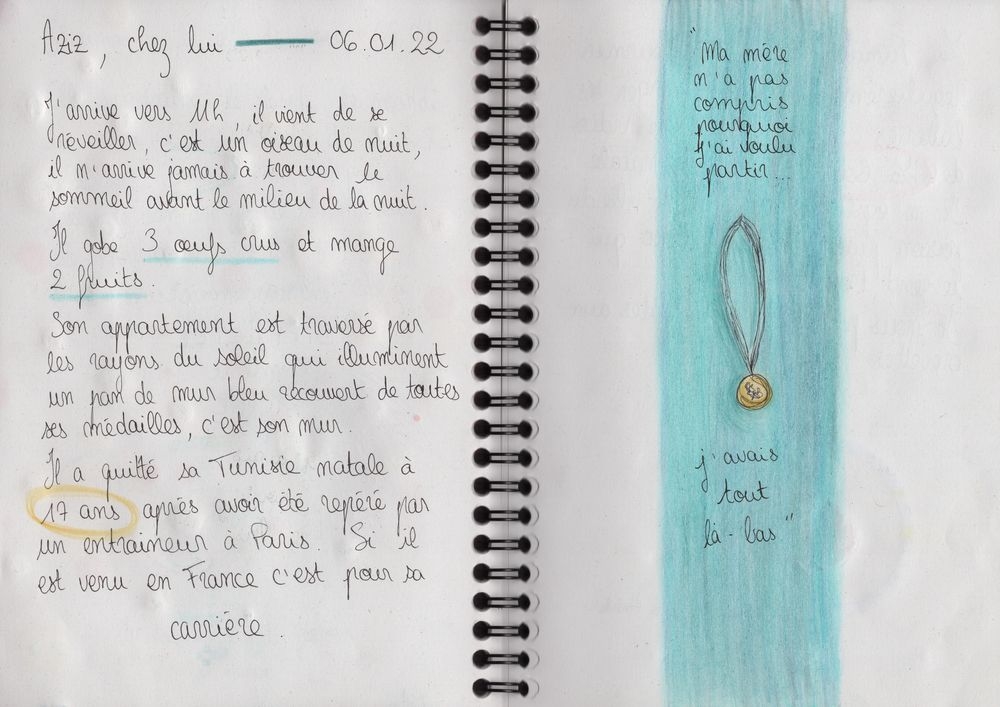 Aziz, chez lui — 06.01.22
J'arrive vers 11h, il vient de se
réveiller, c'est un oiseau de nuit,
il n'arrive jamais à trouver le
sommeil avant le milieu de la nuit.
Il gobe 3 œufs crus et mange
2 fruits.
Son appartement est traversé par
les rayons du soleil qui illuminent
un pan de mur bleu recouvert de toutes
ses médailles, c'est son mur.
Il a quitté sa Tunisie natale à
17 ans après avoir été repéré par
un entraineur à Paris. Si il
est venu en France c'est pour sa
carrière.
"Ma mère
n'a pas
compris
pourquoi
j'ai voulu
partir...
j'avais
tout
là-bas"